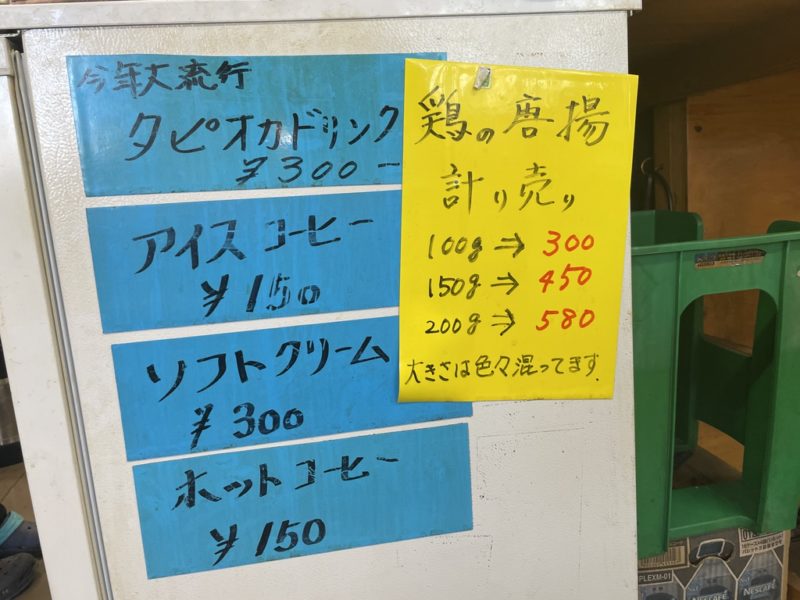 今年大流行
タピオカドリンク
¥300-
アイスコーヒー
¥150
ソフトクリーム
¥300
ホットコーヒー
¥150
鶏の唐揚
計り売り
100g⇒300
150g⇒450
200g⇒580
大きさは色々混ってます。
PLEXM-01
NESCAFÉ
NESCAFÉ